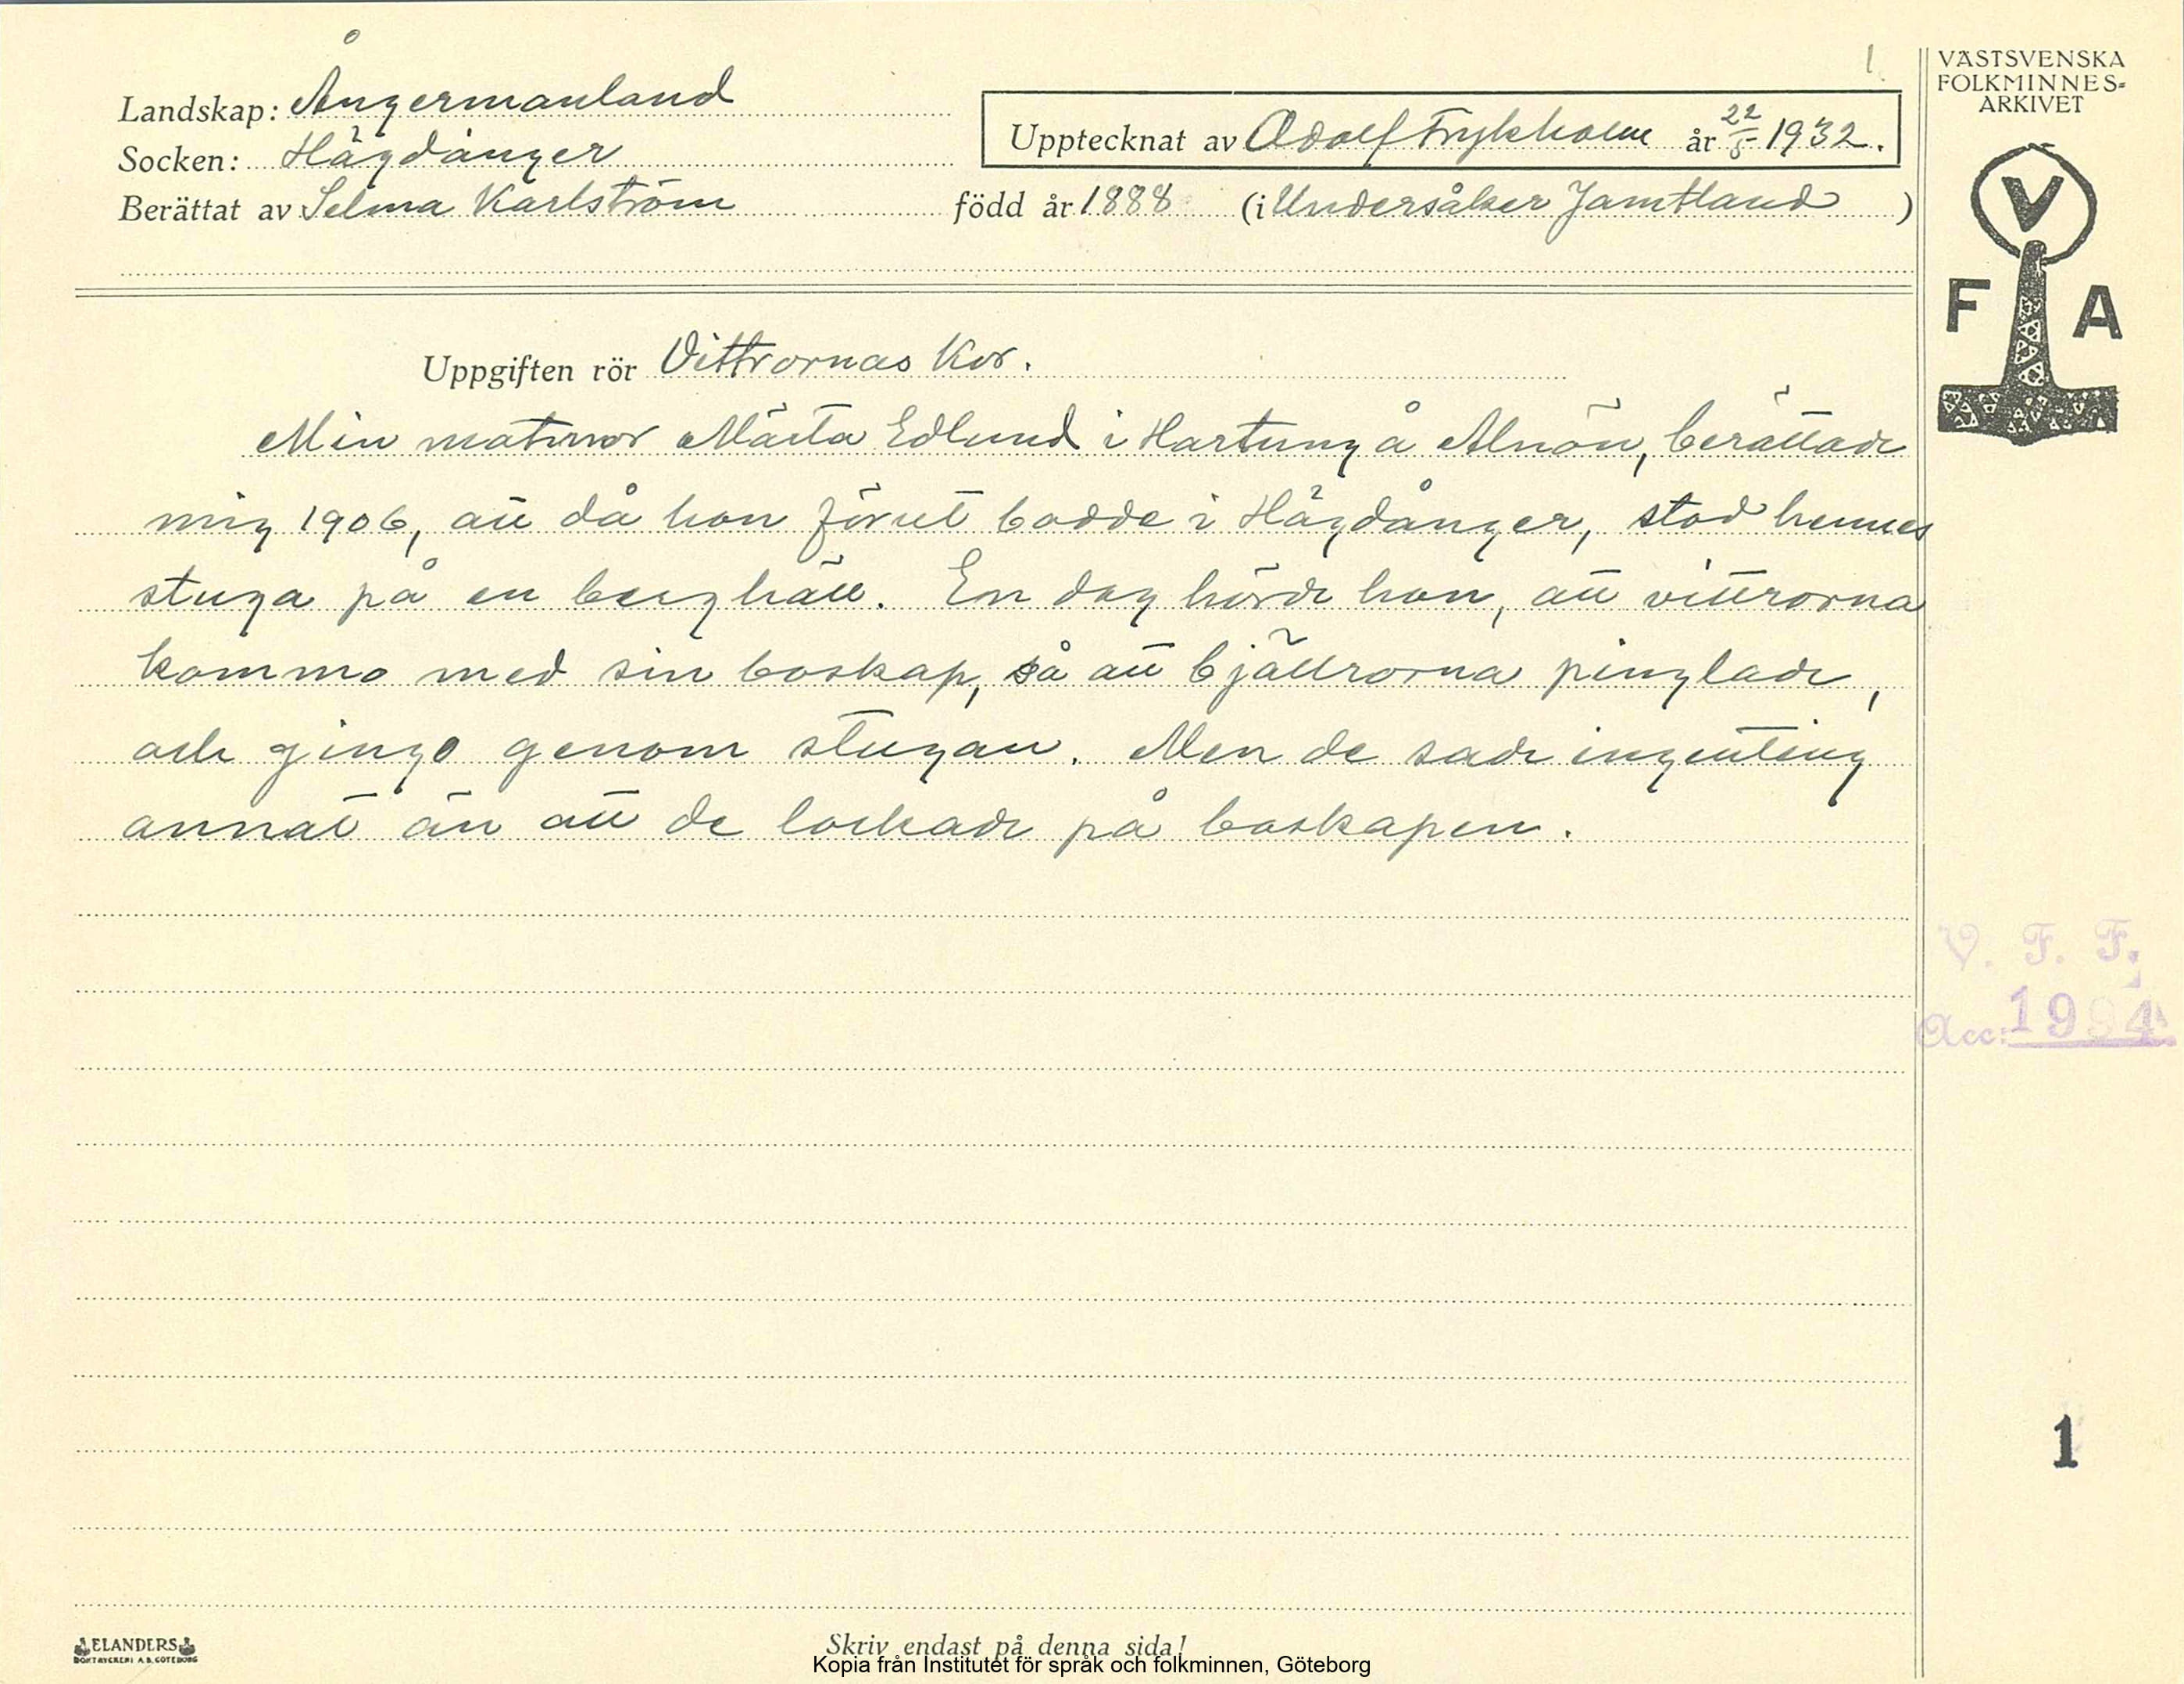 1.
Landskap: Ångermanland
Socken: Hägdånger
Upptecknat av Adolf Frykholm år 22/5 1932.
Berättat av Selma Karlström född år 1888 (i Undersåker Jamtland )
VÄSTSVENSKA
FOLKMINNES-
ARKIVET
V
F A
Uppgiften rör Vittrornas Kor.
Min mormor Märta Edlund i Hartung å Alnön, berättade
mig 1906, att då hon förut bodde i Hägdånger, stod hennes
stuga på en berghäll. En dag hörde hon, att vittrorna
kommo med sin boskap, så att bjällrorna pinglade,
och gingo genom stugan. Men de sade ingenting
annat än att de lockade på boskapen.
V. F. F.
Acc: 1994
1
ELANDERS
BOKTRYCKERI A.B. GÖTEBORG
Skriv endast på denna sida!
Kopia från Institutet för språk och folkminnen, Göteborg